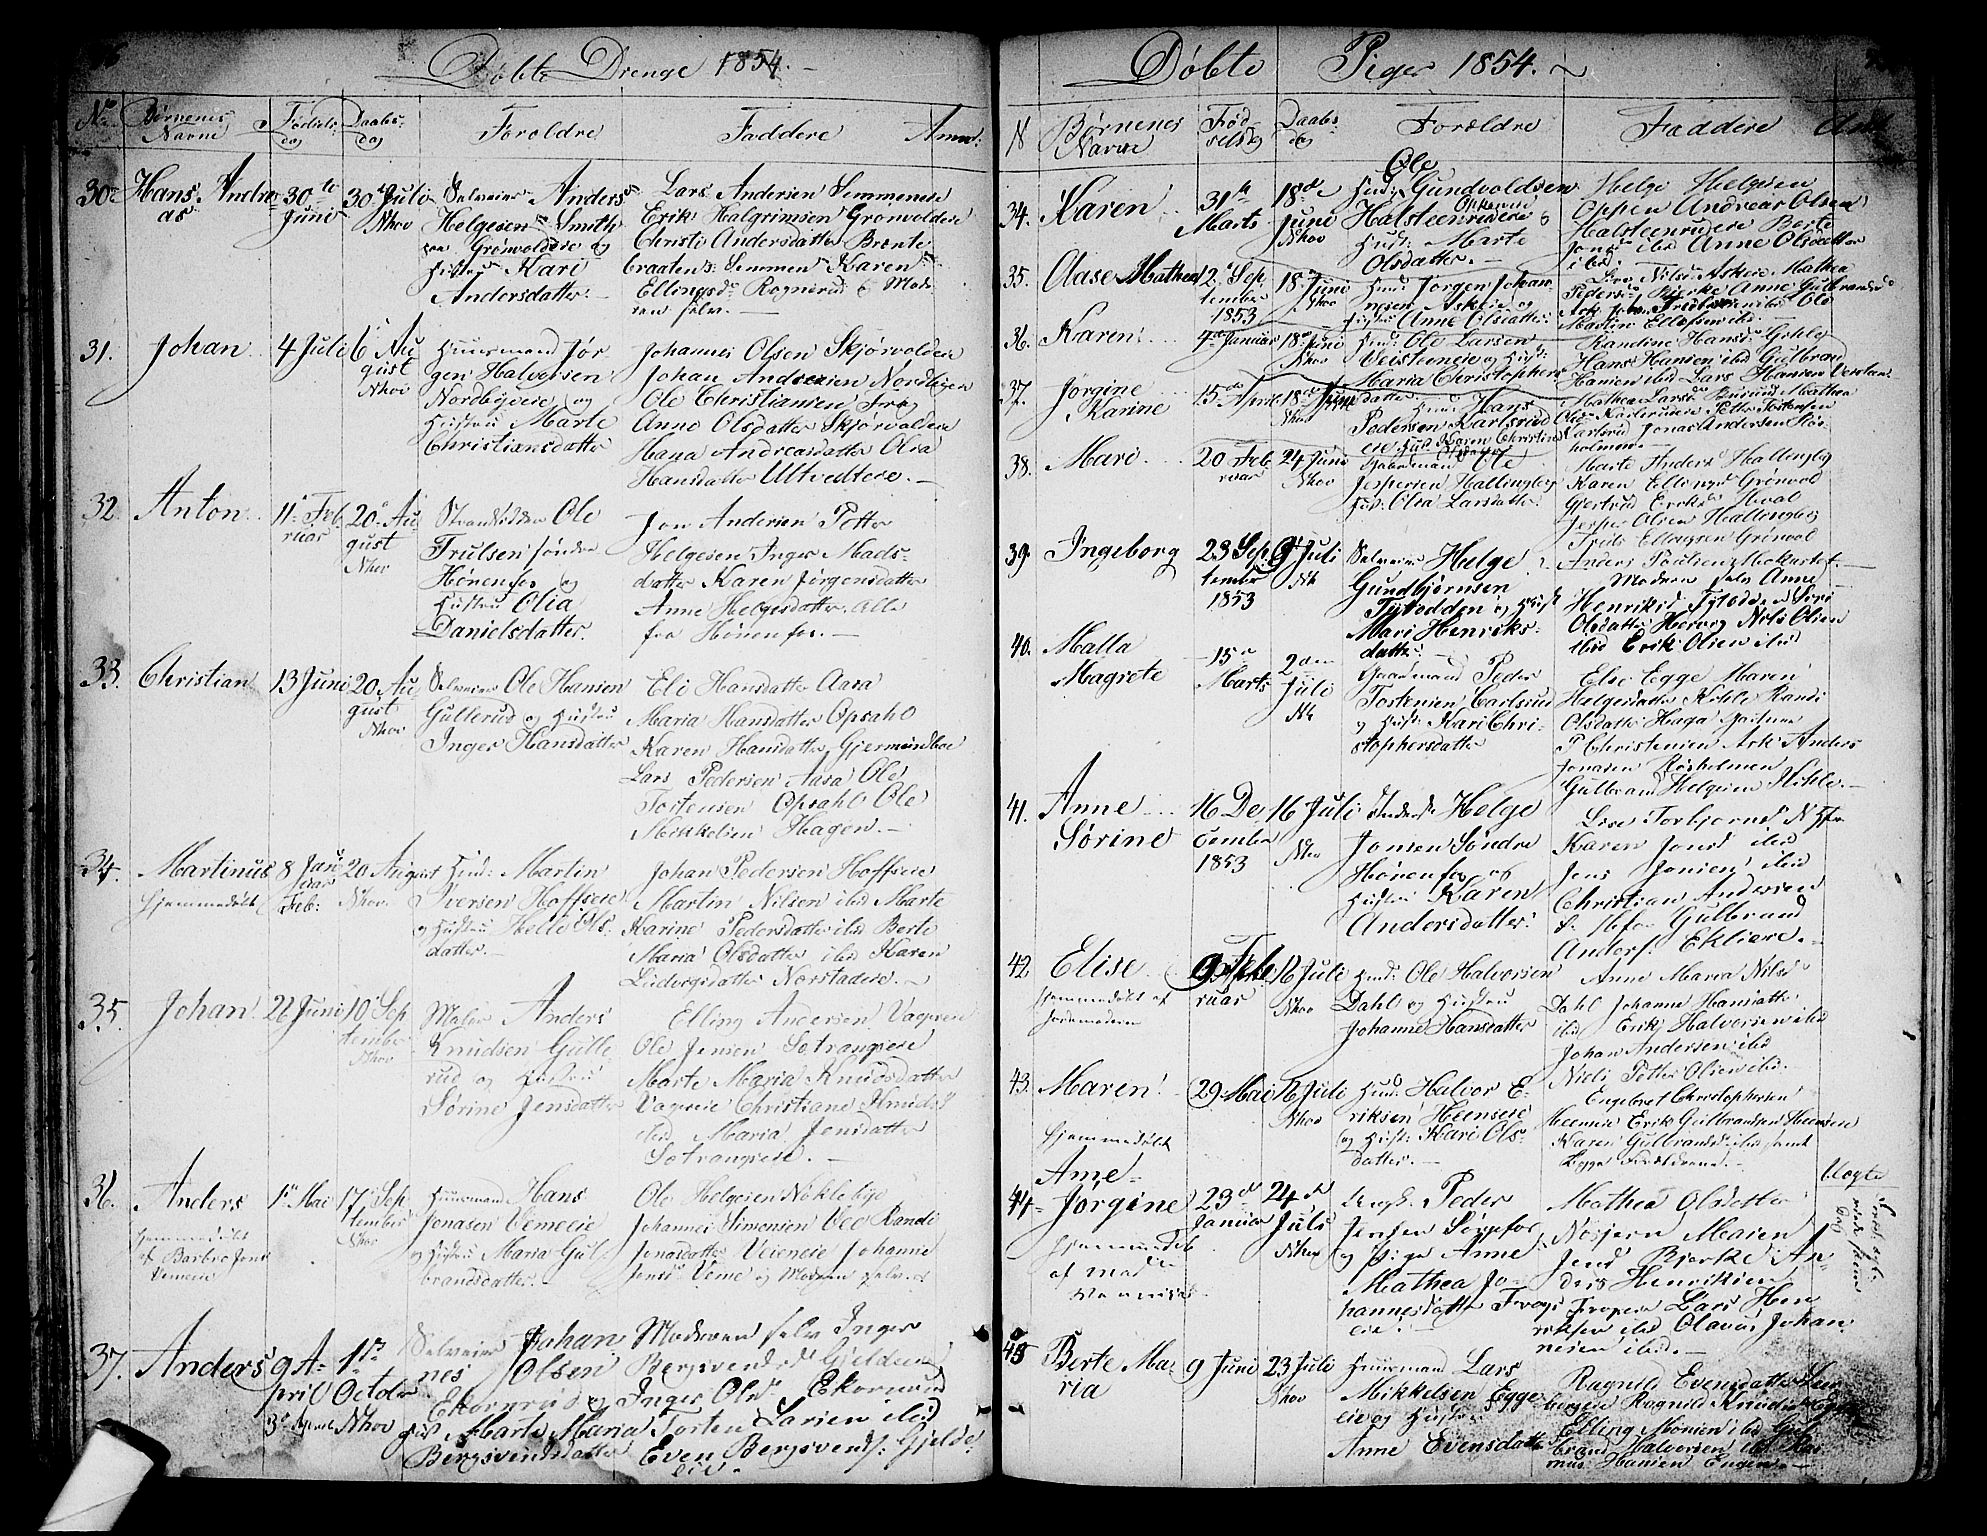 Døbte Drenge 1854.
No
Børnenes Navne
Fødselsdag
Daabsdag
Foroldre
Faddere
Anm:
30
Hans Andreas
30te Juni
30 Juli
Nhov
Selveier Anders
Helgesen Smith
Grønvoldeie og
Hustru Kari
Andersdatter
Lars Andersen Semmeneie
Erik Halgrimsen Grønvoldeie
Christi Andersdatter Brente
braaten Semmen Karen
Ellingsd. Rognerud & Mode
ren selv.
31.
Johan
4 Juli
6 August
Nhov
Huusmand Jør
gen Halvorsen
Nordbyeie og
Hustru Marte
Christiansdatter
Johannes Olsen Skjørvoldeie
Johan Andresen Nordbyeie
Ole Christiansen Frog
Anne Olsdatter Skjørvoldeie
Hana Andreasdatter Olia
Hansdatter Ultvedteie.
32.
Anton
11 Februar
20 August
Nhov
Strandsidder Ole
Trulsen søndre
Hønenfos og
Hustru Olia
Danielsdatter.
Jon Andersen Petter
Helgesen Inger Mads-
datter Karen Jørgensdatter
Anne Helgesdatter. Alle
fra Hønenfos.
33.
Christian
13 Juni
20 August
Nhov
Selveier Ole Hansen
Gullerud og Hustru
Inger Hansdatter
Eli Hansdatter Aasa
Maria Hansdatter Opsahl
Karen Hansdatter Gjermundboe
Lars Pedersen Aasa Ole
Tostensen Opsahl Ole
Mikkelsen Hagen.
34.
Martinus
hjemmedøbt
8 Januar
Feb:
20 August
Nhov.
Huusd: Martin
Iversen Hoffseie
og Hustru Helle Ols-
datter.
Johan Pedersen Hoffseie
Martin Nilsen ibid Marte
Karine Pedersdatter ibid Berte
Maria Olsdatter ibid Karen
Ludvigsdatter Norstadeie.
35.
Johan
22 Juni
10 September
Nhov
Maler Anders
Knudsen Gulle
rud og Hustru
Sørine Jensdatter
Elling Andersen Vagseie
Ole Jensen Sotrangeie
Marte Maria Knudsdatter
Vagseie Christiane Knudsd
ibid Maria Jensdatter
Sotrangeie.
36.
Anders
hjemmedøbt
af Barbro Jonsd
Vemeeie
1ste Mai
17 September
Nhov
Huusmand Hans
Jonasen Vemeeie
og Hustru Maria Gul-
brandsdatter.
Ole Helgesen Nøklebye
Johannes Simonsen Vee Randi
Jonasdatter Veieneie Johanne
Jensd Veme og Moderen selv.
37.
Anders
9 April
1ste October
Nhov
Selveier Johan
nes Olsen
Ekornrud og
Hust Marte Maria
Bergsvendsdatter
Moderen selv Inger
Bergsvendsd Gjeldeeie
Inger Olsd Ekornrud
Torsten Larsen ibid
Even Bergsvends: Gjelde
eie.
Døbte Piger 1854.
N
Børnenes Navne
Fødselsdg
Daabsdg
Forældre
Faddere
Anm
34.
Karen
31te Marts
18de Juni
Nhov
Huusd. Ole Gundvoldsen
Halsteenrudeie &
Hust: Marte
Olsdatter.
Helge Helgesen
Oppen Andreas Olsen
Halsteenrudeie Berte
Jonsd ibid Anne Olsdatter
ibid.
35.
Olase Mathea
12 September
1853
18 Juni
Nhov
Huusd Jørgen Johan-
nesen Askeie og
Hustru Anne Olsdatter.
Nilsd Askeie Mathea
Pedersd Bjerke Anne Gulbrandsd
Martin Ellefsen ibid.
36.
Karen.
7de Januar
18de Juni
Nhov
Huusd: Ole Larsen
Veisteneie og Hust:
Maria Christophers
datter.
Randine Hansd Gihle
Hans Hansen ibid Gulbran
Hansen ibid Lars Hansen
37.
Jørgine
Karine
15de April
18de Juni
Nhov
Huusd: Hans
Pedersen Karlsrud
eie Hust Karen Christine
Mathea Larsd Mathea
Olsd Karlsrudeie Petter Tostensen
Carlsrud Jonas Andersen Røs
holmen.
38.
Mari
20 Februar
24 Juni
Nhov
Gaardmand Ole
Jespersen Hallingby
Hus. Olia Larsdatter.
Marte Andersd Hallingby
Karen Ellingsd Grønvold
Gjertrud Eriksd Hval
Jesper Olsen Hallingby
Truls Ellingsen Grønvold
39.
Ingeborg
23 September
1853
9 Juli
Nk
Selveier Helge
Gundbjørnsen
Tytodden og Hust
Mari Henriks-
datter.
Moderen selv Anne
Henriksd Tytodden Siri
Olsdatter Hervig Nils Olsen
ibid Erik Olsen ibid
40.
Malla
Magrete
15de Marts
2den Juli
Nk
Gaardmand Peder
Tostensen Carlsrud
og Hust: Kari Chri-
stophersdatter
Else Egge Maren
Helgesdatter Kihle Randi
Olsdatter Haga
P Christensen Ask Anders
Jonasen Røsholmen
Gulbrand Helgesen Kihle.
41.
Anne
Sørine
16 December
1853
16 Juli
Nhov
Helge
Jonsen Søndre
Hønenfos og
Hustru Karen
Andersdatter.
Lise Torbjørnsd N Hfos
Karen Jonsd ibid
Jens Jonsen ibid
Christian Andersen
S. Hfos Gulbrand
Anders. Eklieie.
42.
Elise
hjemmedøbt af
Jordemoderen
9 Februar
16 Juli
Nhov
Huusd: Ole Halvorsen
Dahl og Hustru
Johanne Hansdatter
Anne Maria Nilsd
Dahl Johanne Hansdatter
ibid Erik Halvorsen ibid
Johan Andersen ibid
Nicli Petter Olsen ibid.
43.
Maren
hjemmedøbt
29 Mai
16 Juli
Nhov
Huusd: Halvor E-
riksen Heenseie
og Hust: Kari Ols-
datter.
Engebret Christophersen
Heenseie Erik Gulbrandsen Heensen
Karen Gulbrandsd ibid samt
begge Forældrene.
44.
Ane
Jørgine
hjemmedøbt
af Mad
23de Januar
24de Juli
Nhov
Ungk. Peder
Jensen Sørgefos
og Pige Anne
Mathea Jo-
hannesdatter Frogs
eie.
Mathea Olsdatter
Maren
Jensd Bjerke An-
ders Henriksen
Lars Hen
riksen ibid Olavus Johan
nesen ibid.
Uægte
45
Berte Ma
ria
9 Juni
23 Juli
Nhov
Huusmand Lars
Mikkelsen Egge
eie og Hustru
Anne Evensdatter
Ragnild Evensdatter
Ragnild Knudsd Egge
Elling Monsen ibid Gul
brand Halvorsen ibid Ras
mus Hansen Engen.